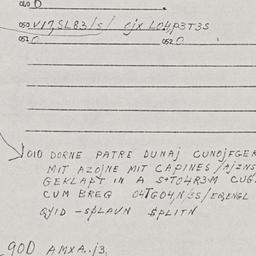 010 D
050 V17,SL83/s/ ejx L04P3T3S
052 O 052 O
010 DORNE PATRE DUNAJ CUNOJFGER
MIT AZOJNE MIT CAPINES /AJZNS
GEKLAPT IN A S+T04R3M CUG
CUM BREG 04TG04,N/3S/EQ,ENGL
QYID -SPLAVN SPLITN
90D AMXA.J3.